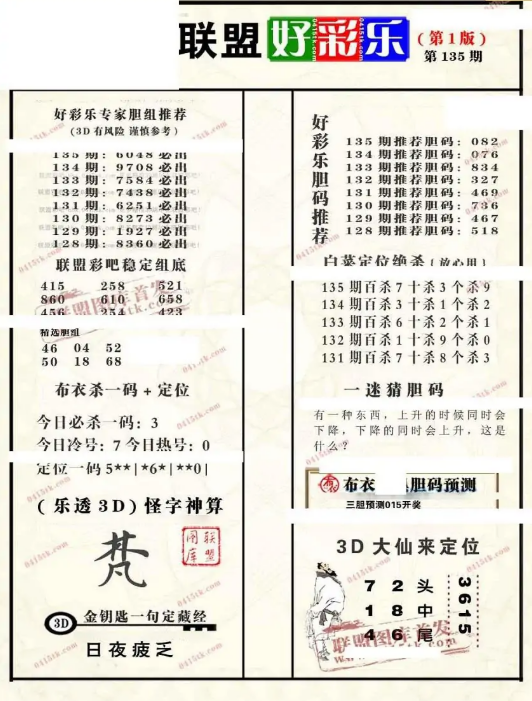 联盟 好彩乐
(第1版)
第135期
好彩乐专家胆组推荐
(3D有风险 谨慎参考)
135期: 6048 必出
134期: 9708 必出
133期: 7584 必出
132期: 7438 必出
131期: 6251 必出
130期: 8273 必出
129期: 1927 必出
128期: 8360 必出
联盟彩吧稳定组底
415 258 521
860 610 658
456 254 423
精选胆组
46 04 52
50 18 68
布衣杀一码+定位
今日必杀一码: 3
今日冷号: 7 今日热号: 0
定位一码 5**|*6*|**0|
(乐透3D) 怪字神算
梵
联盟图库
3D 金钥匙一句定藏经
日夜疲乏
好彩乐胆码推荐
135期推荐胆码: 082
134期推荐胆码: 076
133期推荐胆码: 834
132期推荐胆码: 327
131期推荐胆码: 469
130期推荐胆码: 736
129期推荐胆码: 467
128期推荐胆码: 518
白菜定位绝杀 (放心用)
135期百杀7十杀3个杀9
134期百杀3十杀1个杀2
133期百杀6十杀2个杀1
132期百杀1十杀9个杀0
131期百杀7十杀8个杀3
一迷猜胆码
有一种东西,上升的时候同时会
下降,下降的同时会上升,这是
什么?
布衣 胆码预测
三胆预测015开奖
3D大仙来定位
7 2 头
1 8 中
4 6 尾
3615
联盟图库首发
0415tk.com